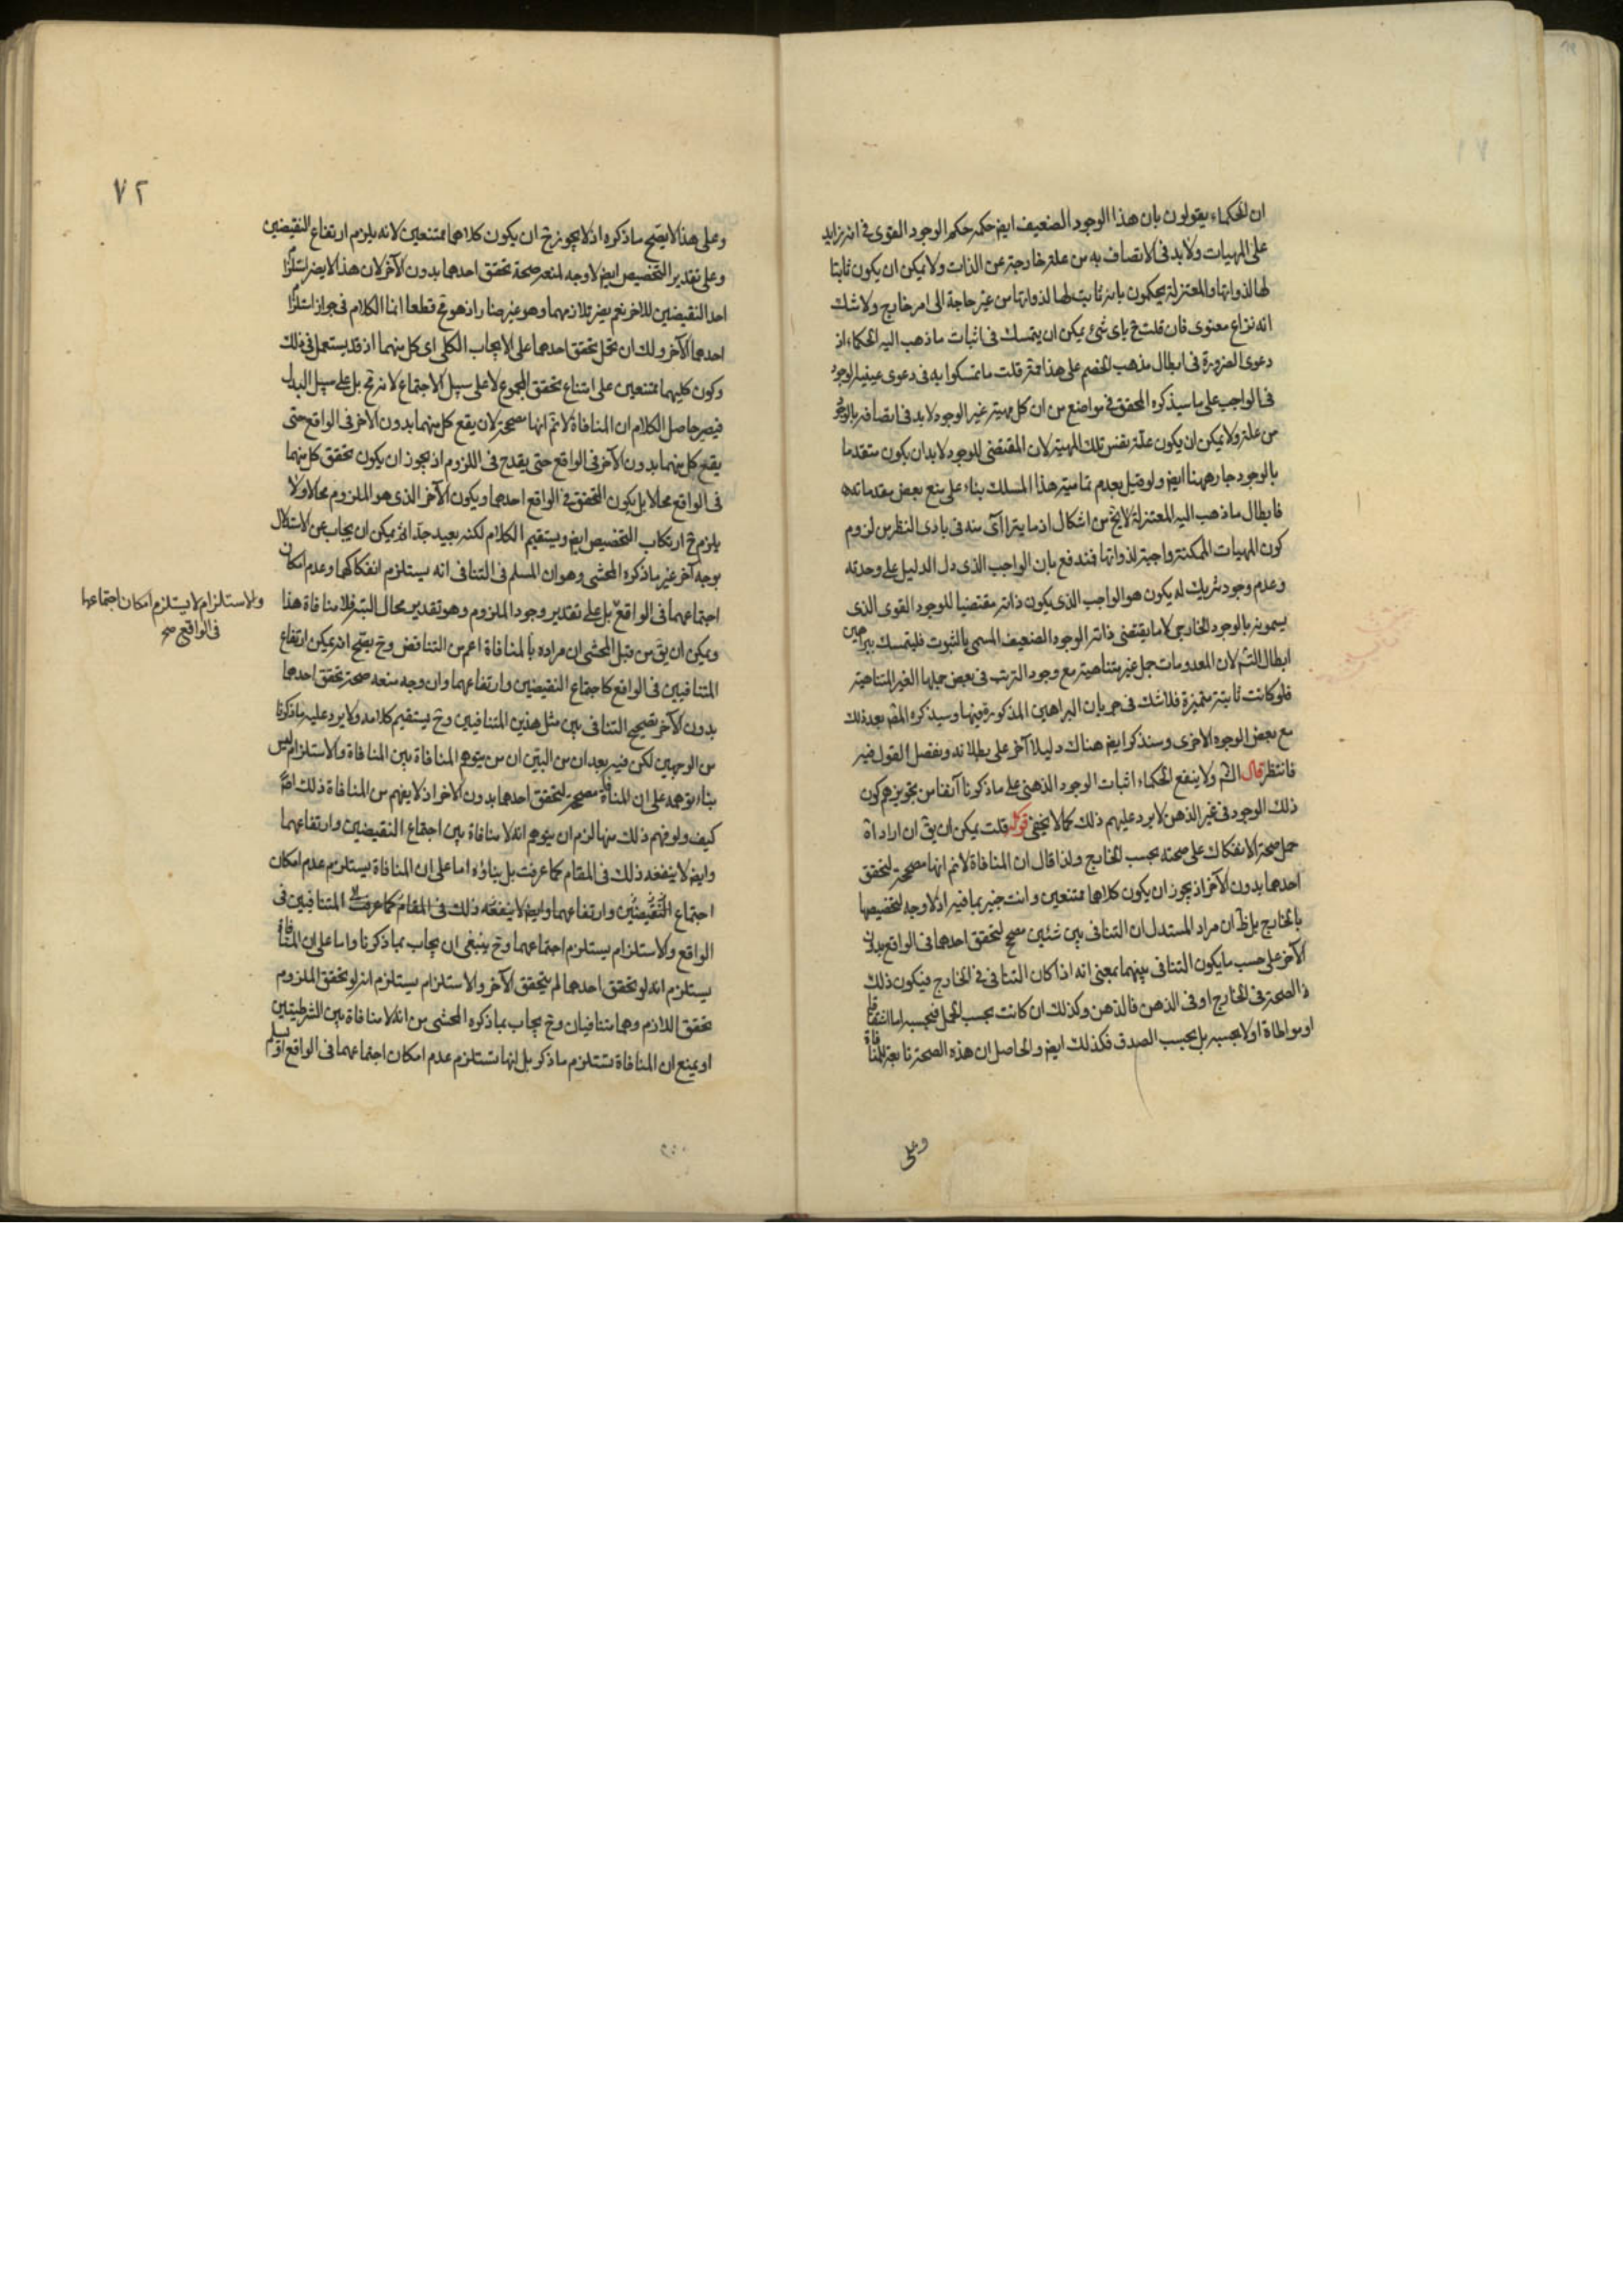 ان الحكماء يقولون بان هذا الوجود الضعيف ايض حكمه حكم الوجود القوى فى انه زايد
على المهيات ولابد فى الاتصاف به من علة خارجة عن الذات ولا يمكن ان يكون ثابتا
لها لذواتها والمعتزلة يحكمون بانه ثابت لها لذواتها من غير حاجة الى امر خارج ولا شك
انه نزاع معنوى فان قلت ح باى شئ يمكن ان يتمسك فى اثبات ما ذهب اليه الحكماء اذ
دعوى الضرورة فى ابطال مذهب الخصم على هذا ممة قلت ما تمسكوا به فى دعوى عينية الوجود
فى الواجب على ما سيذكره المحقق فى مواضع من ان كل مهية غير الوجود لابد فى اتصافه بالوجود
من علة ولا يمكن ان يكون علته نفس تلك المهية لان المقتضى للوجود لابد ان يكون متقدما
بالوجود جار ههنا ايض ولو قيل بعدم تمامية هذا المسلك بناء على منع بعض مقدماته
فابطال ما ذهب اليه المعتزلة لايخ من اشكال اذ ما يتراآى منه فى بادى النظر من لزوم
كون المهيات الممكنة واجبة لذواتها فمندفع بان الواجب الذى دل الدليل على وحدته
وعدم وجود شريك له يكون هو الواجب الذى يكون ذاته مقتضيا للوجود القوى الذى
يسمونه بالوجود الخارجى لا ما يقتضى ذاته الوجود الضعيف المسمى بالثبوت فليتمسك ببراهين
ابطال التس لان المعدومات جمل غير متناهية مع وجود الترتب فى بعض جملها الغير المتناهية
فلو كانت ثابتة متميزة فلا شك فى جريان البراهين المذكورة فيها وسيذكره المص بعد ذلك
مع بعض الوجوه الاخرى وسنذكر ايض هناك دليلا آخر على بطلانه ونفصل القول فيه
فانتظر قال الش ولا ينفع الحكماء اثبات الوجود الذهنى على ما ذكرنا آنفا من تجويزهم كون
ذلك الوجود فى غير الذهن لا يرد عليهم ذلك كما لا يخفى قوله قلت يمكن ان يق ان اراد اة
حمل صحة الانفكاك على صحته بحسب الخارج ولذا قال ان المنافاة لاتم انها مصححة لتحقق
احدهما بدون الآخر اذ يجوز ان يكون كلاهما ممتنعين وانت خبير بما فيه اذ لا وجه لتخصيصها
بالخارج بل ظ ان مراد المستدل ان التنافى بين شئين مصحح لتحقق احدهما فى الواقع بدون
الآخر على حسب ما يكون التنافى بينهما بمعنى انه اذا كان التنافى فى الخارج فيكون ذلك
الصحة فى الخارج او فى الذهن فالذهن وكذلك ان كانت بحسب الحمل فبحسبه اما اشتقاقا
او مواطاة او لا بحسبه بل بحسب الصدق فكذلك ايض والحاصل ان هذه الصحة تابعة للمنافاة
وعلى
٧٢
وعلى هذا لا يصح ما ذكره اذ لا يجوز ح ان يكون كلاهما ممتنعين لانه يلزم ارتفاع النقيضين
وعلى تقدير التخصيص ايض لا وجه لمنعه صحة تحقق احدهما بدون الآخر لان هذا لا يضر استلزام
احد النقيضين للاخر نعم يضر تلازمهما وهو غير ضار اذ هو مح قطعا انما الكلام فى جواز استلزام
احدهما الآخر ولك ان تحمل تحقق احدهما على الايجاب الكلى اى كل منهما اذ قد يستعمل فى ذلك
وكون كليهما ممتنعين على امتناع تحقق المجموع لا على سبيل الاجتماع لانه مح بل على سبيل البدل
فيصير حاصل الكلام ان المنافاة لاتم انها مصححة لان يقع كل منهما بدون الاخر فى الواقع حتى
يقع كل منهما بدون الآخر فى الواقع حتى يقدح فى اللزوم اذ يجوز ان يكون تحقق كل منهما
فى الواقع محالا بل يكون المتحقق فى الواقع احدهما ويكون الآخر الذى هو الملزوم محالا ولا
يلزم ح ارتكاب التخصيص ايض ويستقيم الكلام لكنه بعيد جدا ثم يمكن ان يجاب عن الاستدلال
بوجه آخر غير ما ذكره المحشى وهو ان المسلم فى التنافى انه يستلزم انفكاكهما وعدم امكان
اجتماعهما فى الواقع بل على تقدير وجود الملزوم وهو تقدير محال البتة فلا منافاة هذا
والاستلزام لا يستلزم امكان اجتماعهما
فى الواقع صح
ويمكن ان يق من قبل المحشى ان مراده بالمنافاة اعم من التناقض وح يصح انه يمكن ارتفاع
المتنافيين فى الواقع كاجتماع النقيضين وارتفاعهما وان وجه منعه صحة تحقق احدهما
بدون الآخر تصحيح التنافى بين مثل هذين المتنافيين وح يستقيم كلامه ولا يرد عليه ما ذكرنا
من الوجهين لكن فيه بعد ان من البين ان من يتوهم المنافاة بين المنافاة والاستلزام ليس
بناء توهمه على ان المنافاة مصححة لتحقق احدهما بدون الاخر اذ لا يفهم من المنافاة ذلك اصلا
كيف ولو فهم ذلك منها لزم ان يتوهم انه لا منافاة بين اجتماع النقيضين وارتفاعهما
وايض لا ينفعه ذلك فى المقام كما عرفت بل بناؤه اما على ان المنافاة يستلزم عدم امكان
اجتماع النقيضين وارتفاعهما وايض لا ينفعه ذلك فى المقام كما عرفت المتنافيين فى
الواقع والاستلزام يستلزم اجتماعهما وح ينبغى ان يجاب بما ذكرنا واما على ان المنافاة
يستلزم انه لو تحقق احدهما لم يتحقق الآخر والاستلزام يستلزم انه لو تحقق الملزوم
تحقق اللازم وهما متنافيان وح يجاب بما ذكره المحشى من انه لا منافاة بين الشرطيتين
او يمنع ان المنافاة تستلزم ما ذكر بل انها تستلزم عدم امكان اجتماعهما فى الواقع